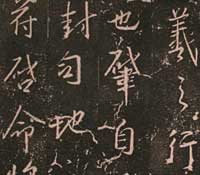 羲之行
也肇自
封句地
符啓命